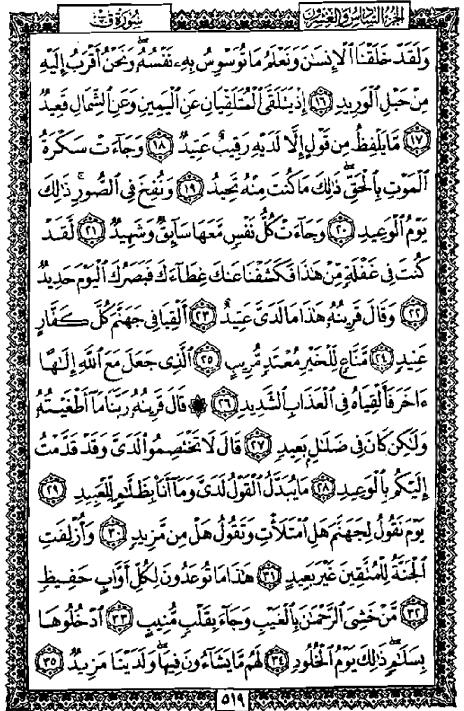 الجُزءُ السَّادِسُ وَالعِشرُونَ سُورَةُ قٓ
وَلَقَدْ خَلَقْنَا ٱلْإِنسَٰنَ وَنَعْلَمُ مَا تُوَسْوِسُ بِهِۦ نَفْسُهُۥ ۖ وَنَحْنُ أَقْرَبُ إِلَيْهِ
مِنْ حَبْلِ ٱلْوَرِيدِ ١٦ إِذْ يَتَلَقَّى ٱلْمُتَلَقِّيَانِ عَنِ ٱلْيَمِينِ وَعَنِ ٱلشِّمَالِ قَعِيدٌ
١٧ مَّا يَلْفِظُ مِن قَوْلٍ إِلَّا لَدَيْهِ رَقِيبٌ عَتِيدٌ ١٨ وَجَآءَتْ سَكْرَةُ
ٱلْمَوْتِ بِٱلْحَقِّ ۖ ذَٰلِكَ مَا كُنتَ مِنْهُ تَحِيدُ ١٩ وَنُفِخَ فِى ٱلصُّورِ ۚ ذَٰلِكَ
يَوْمُ ٱلْوَعِيدِ ٢٠ وَجَآءَتْ كُلُّ نَفْسٍ مَّعَهَا سَآئِقٌ وَشَهِيدٌ ٢١ لَّقَدْ
كُنتَ فِى غَفْلَةٍ مِّنْ هَٰذَا فَكَشَفْنَا عَنكَ غِطَآءَكَ فَبَصَرُكَ ٱلْيَوْمَ حَدِيدٌ
٢٢ وَقَالَ قَرِينُهُۥ هَٰذَا مَا لَدَىَّ عَتِيدٌ ٢٣ أَلْقِيَا فِى جَهَنَّمَ كُلَّ كَفَّارٍ
عَنِيدٍ ٢٤ مَّنَّاعٍ لِّلْخَيْرِ مُعْتَدٍ مُّرِيبٍ ٢٥ ٱلَّذِى جَعَلَ مَعَ ٱللَّهِ إِلَٰهًا
ءَاخَرَ فَأَلْقِيَاهُ فِى ٱلْعَذَابِ ٱلشَّدِيدِ ٢٦ ۞ قَالَ قَرِينُهُۥ رَبَّنَا مَآ أَطْغَيْتُهُۥ
وَلَٰكِن كَانَ فِى ضَلَٰلٍۭ بَعِيدٍ ٢٧ قَالَ لَا تَخْتَصِمُوا۟ لَدَىَّ وَقَدْ قَدَّمْتُ
إِلَيْكُم بِٱلْوَعِيدِ ٢٨ مَا يُبَدَّلُ ٱلْقَوْلُ لَدَىَّ وَمَآ أَنَا۠ بِظَلَّٰمٍ لِّلْعَبِيدِ ٢٩
يَوْمَ نَقُولُ لِجَهَنَّمَ هَلِ ٱمْتَلَأْتِ وَتَقُولُ هَلْ مِن مَّزِيدٍ ٣٠ وَأُزْلِفَتِ
ٱلْجَنَّةُ لِلْمُتَّقِينَ غَيْرَ بَعِيدٍ ٣١ هَٰذَا مَا تُوعَدُونَ لِكُلِّ أَوَّابٍ حَفِيظٍ
٣٢ مَّنْ خَشِىَ ٱلرَّحْمَٰنَ بِٱلْغَيْبِ وَجَآءَ بِقَلْبٍ مُّنِيبٍ ٣٣ ٱدْخُلُوهَا
بِسَلَٰمٍ ۖ ذَٰلِكَ يَوْمُ ٱلْخُلُودِ ٣٤ لَهُم مَّا يَشَآءُونَ فِيهَا وَلَدَيْنَا مَزِيدٌ ٣٥
٥١٩